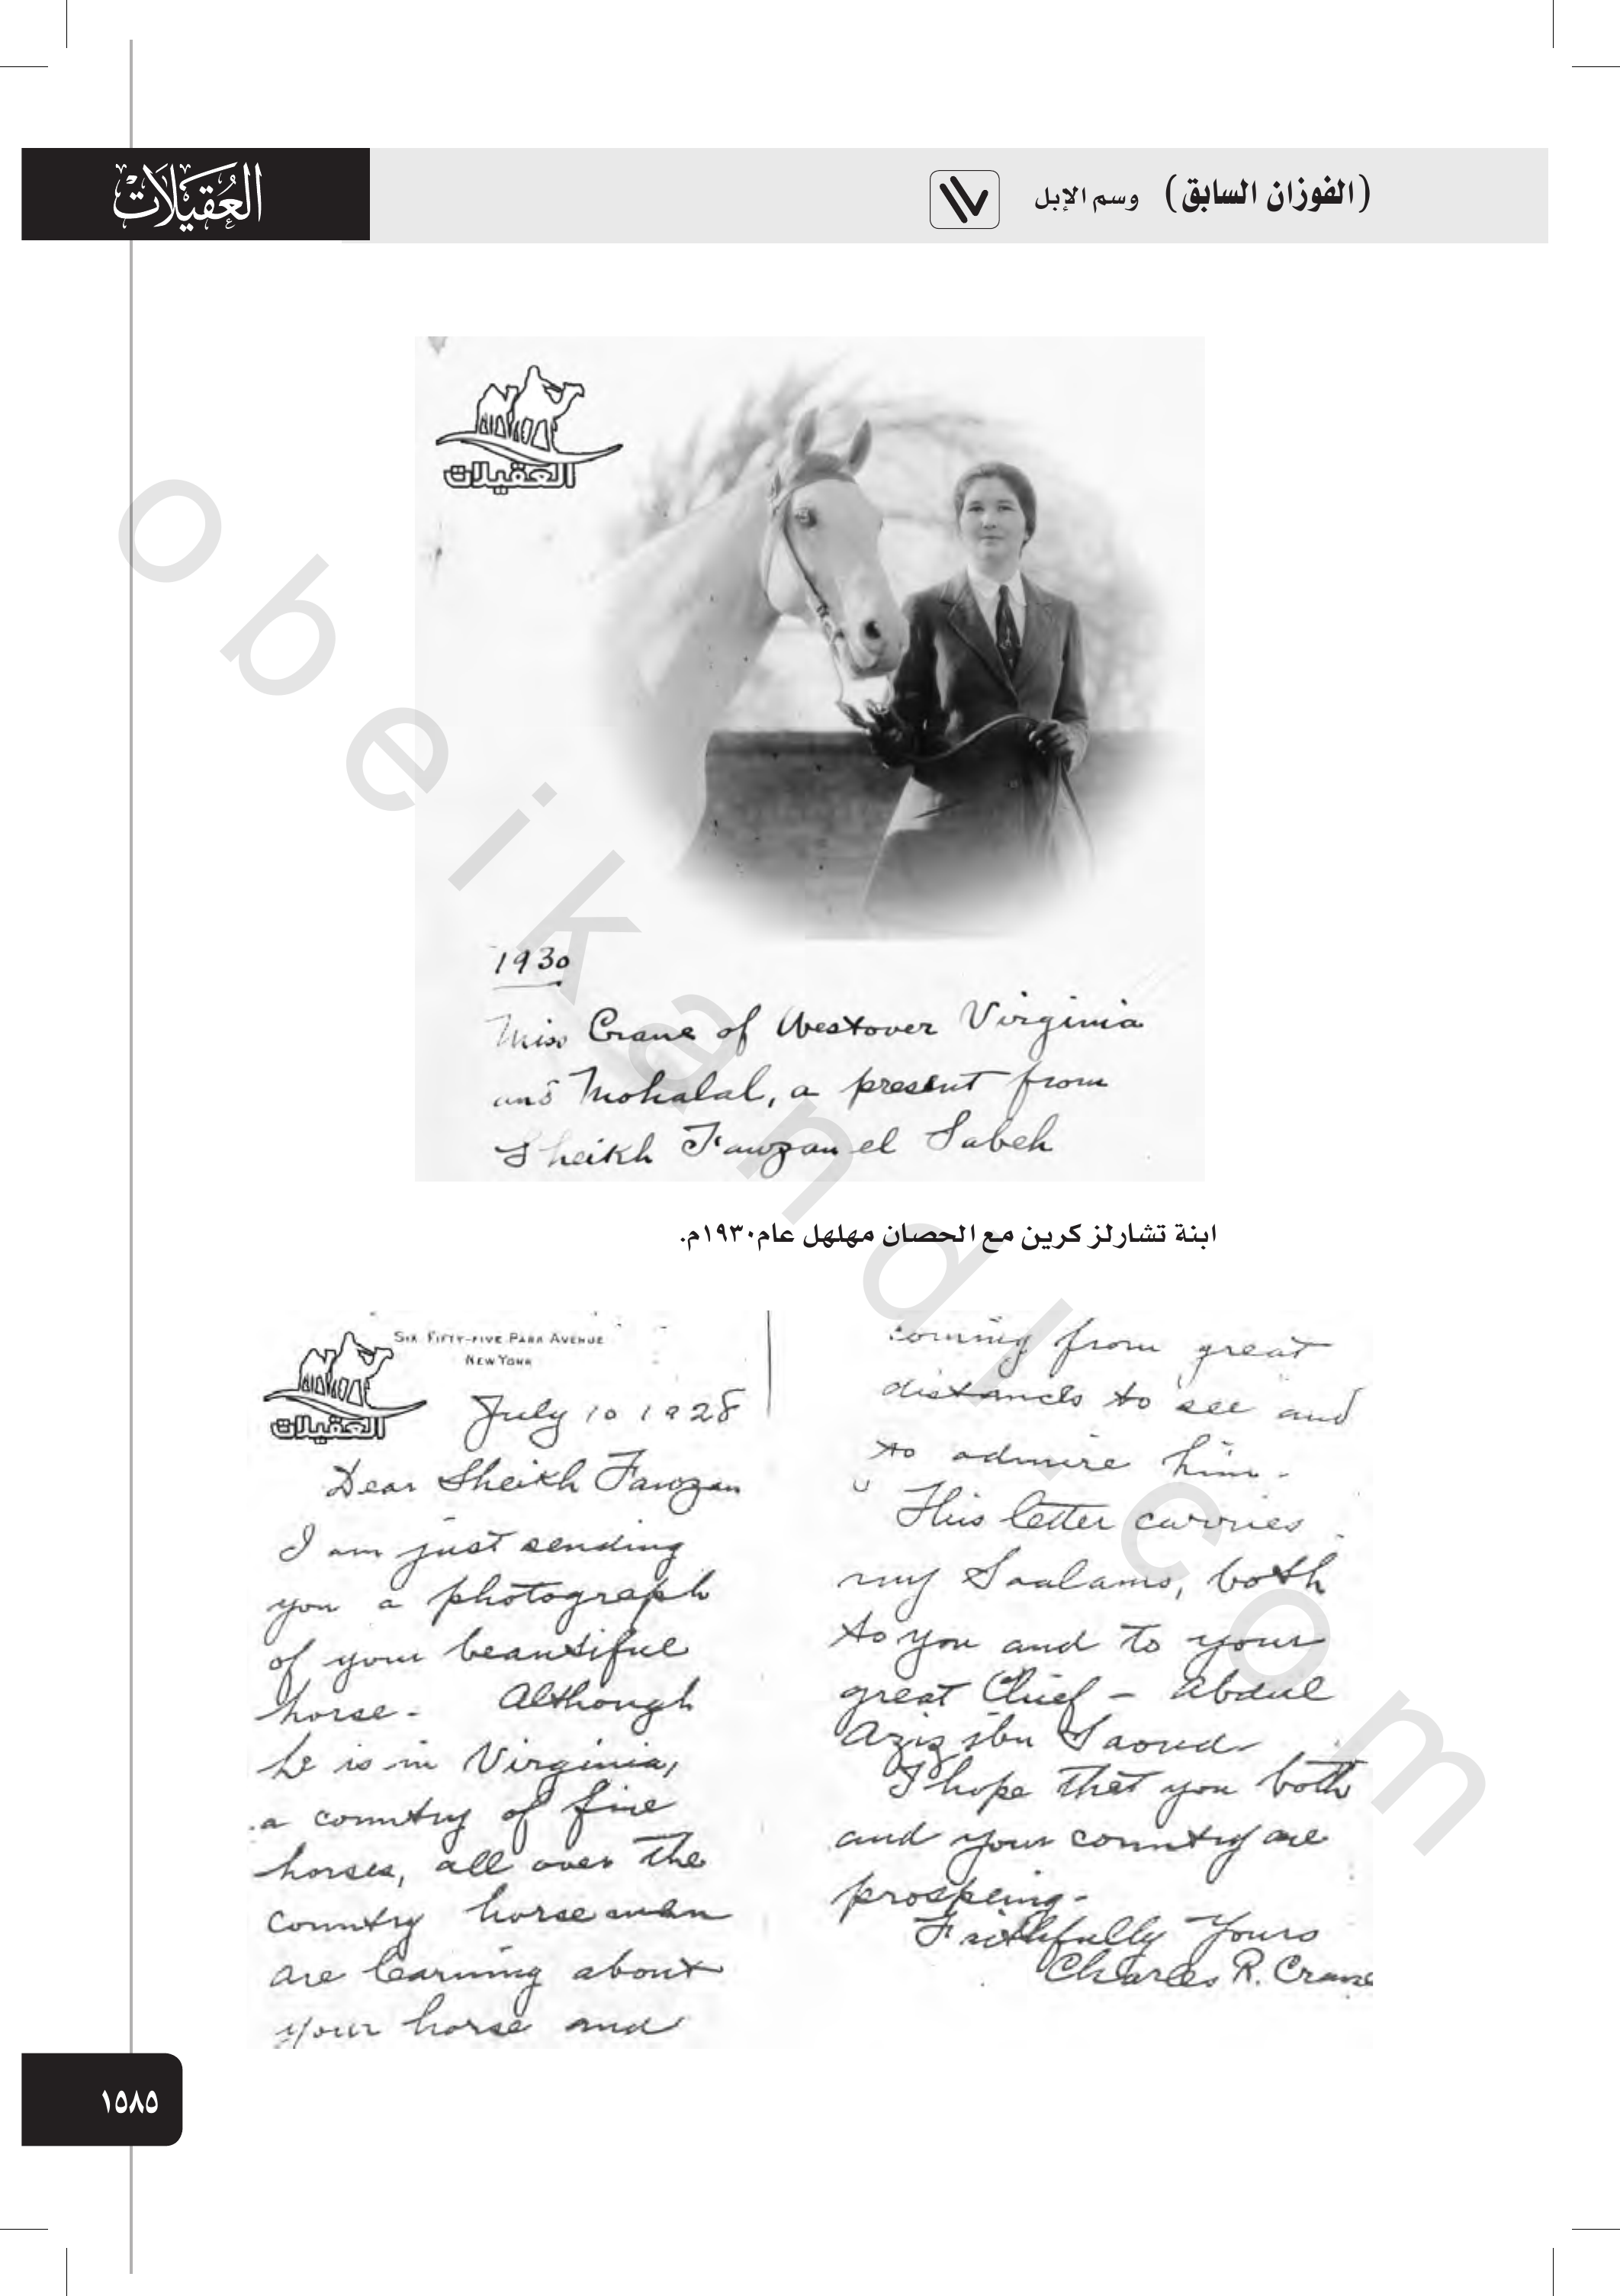 العُقَيْلَات
(الفوزان السابق) وسم الإبل
العقيلات
1930
Miss Crane of Westover Virginia
and Mohalal, a present from
Sheikh Fawzan el Sabeh
ابنة تشارلز كرين مع الحصان مهلهل عام١٩٣٠م.
SIX FIFTY-FIVE PARK AVENUE
NEW YORK
العقيلات
July 10 1928
Dear Sheikh Fawzan
I am just sending
you a photograph
of your beautiful
horse - Although
he is in Virginia,
a country of fine
horses, all over the
country horsemen
are learning about
your horse and
coming from great
distances to see and
to admire him -
This letter carries
my Saalams, both
to you and to your
great Chief - Abdul
Aziz ibn Saoud
I hope that you both
and your country are
prospering -
Faithfully Yours
Charles R. Crane
١٥٨٥
obeikandl.com